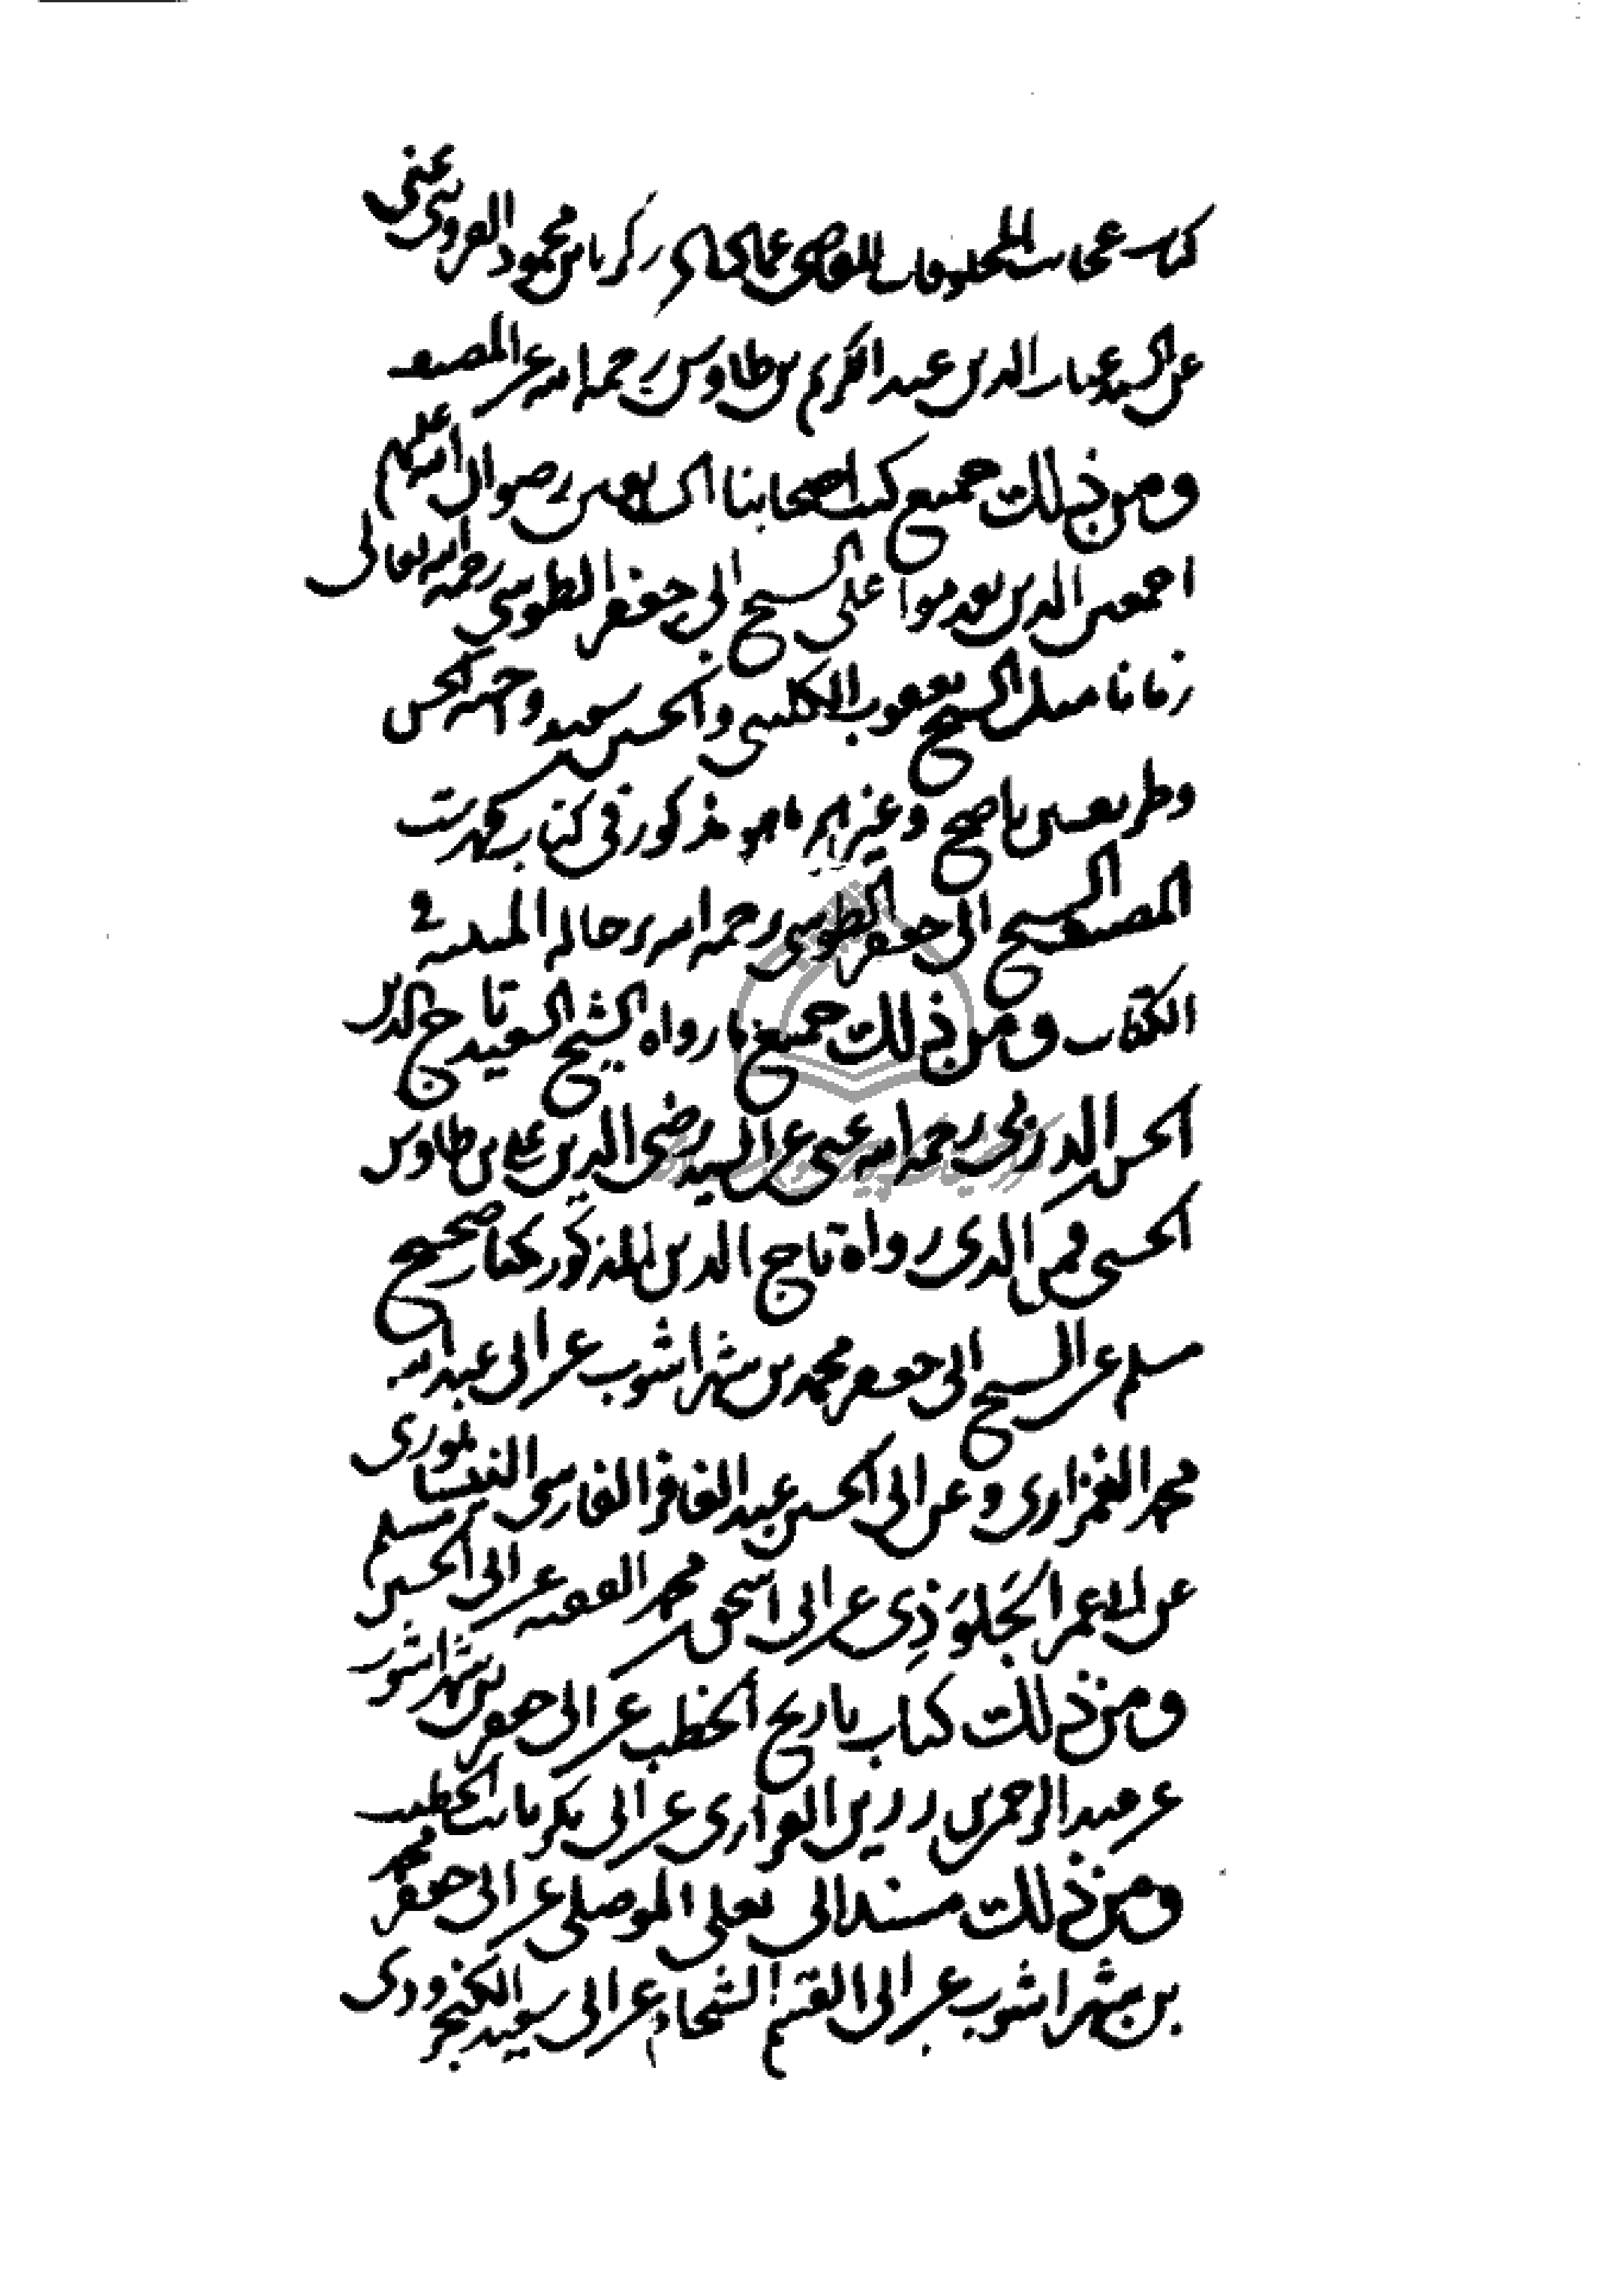 كتاب عجائب المخلوقات للقاضي عماد الدين زكريا بن محمود القزويني عني
عن السيد غياث الدين عبد الكريم بن طاوس رحمه الله عن المصنف
ومن ذلك جميع كتب اصحابنا السابقين رضوان الله عليهم
اجمعين الذين تقدموا على الشيخ ابي جعفر الطوسي رحمه الله تعالى
زمانا مثل الشيخ يعقوب الكليني والحسين بن سعيد واخيه الحسن
وظريف بن ناصح وغيرهم ما هو مذكور في كتاب فهرست
المصنفين للشيخ ابي جعفر الطوسي رحمه الله برجاله المثبتة في
الكتاب ومن ذلك جميع ما رواه الشيخ السعيد تاج الدين
الحسن بن الدربي رحمه الله عني عن السيد رضي الدين علي بن طاوس
الحسني فمن الذي رواه تاج الدين المذكور كتاب صحيح
مسلم عن الشيخ ابي جعفر محمد بن شهراشوب عن ابي عبد الله
محمد الفزاري وعن ابي الحسين عبد الغافر الفارسي النيسابوري
عن ابي الجلوذي عن ابي اسحق محمد الفقيه عن ابي الحسين بن مسلم
ومن ذلك كتاب تاريخ الخطيب عن ابي جعفر بن شهراشوب
عن عبد الرحمن بن زريق القزاز عن ابي بكر ثابت الخطيب
ومن ذلك مسند ابي يعلى الموصلي عن ابي جعفر محمد
بن شهراشوب عن ابي القسم الشحام عن ابي سعيد الكنجرودي